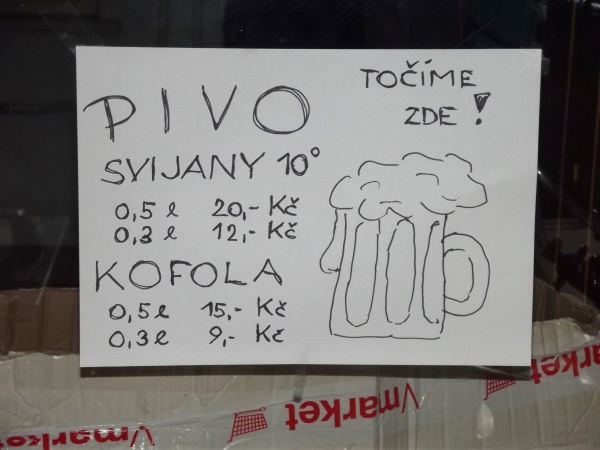 PIVO
TOČÍME
ZDE!
SVIJANY 10°
0,5 l 20,- Kč
0,3 l 12,- Kč
KOFOLA
0,5 l 15,- Kč
0,3 l 9,- Kč
Vmarket
Vmarket
Vmarket